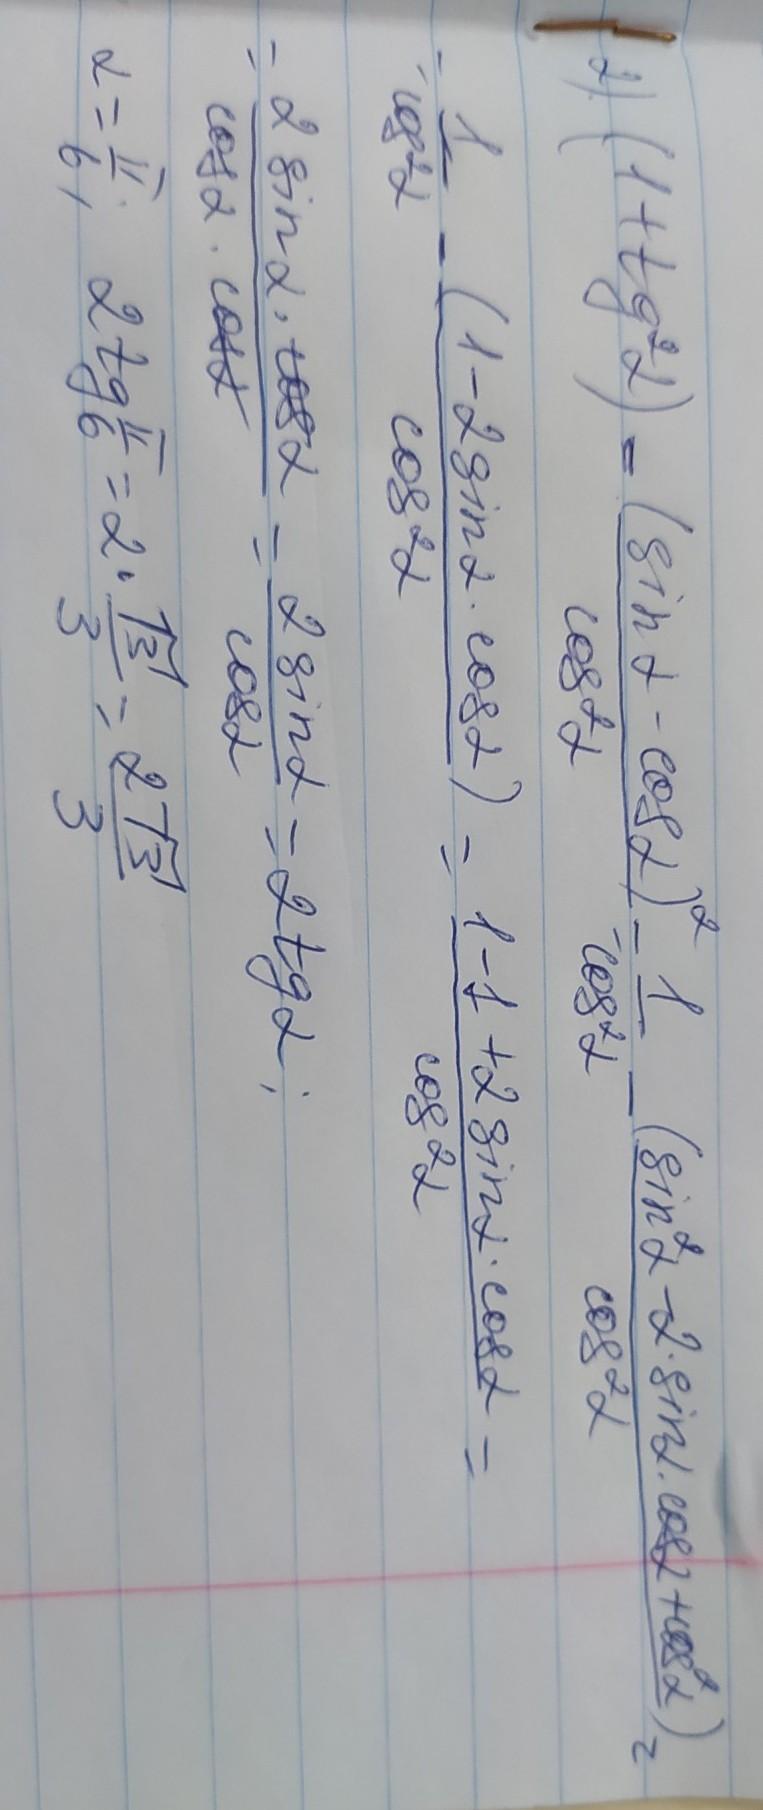 2) (1 + tg²α) - (sin α - cos α)² / cos²α = 1 / cos²α - (sin²α - 2·sin α · cos α + cos²α) / cos²α =
= 1 / cos²α - (1 - 2 sin α · cos α) / cos²α = 1 - 1 + 2 sin α · cos α / cos²α =
= 2 sin α · cos α / cos α · cos α = 2 sin α / cos α = 2 tg α ;
α = π/6, 2 tg π/6 = 2 · √3/3 = 2√3/3